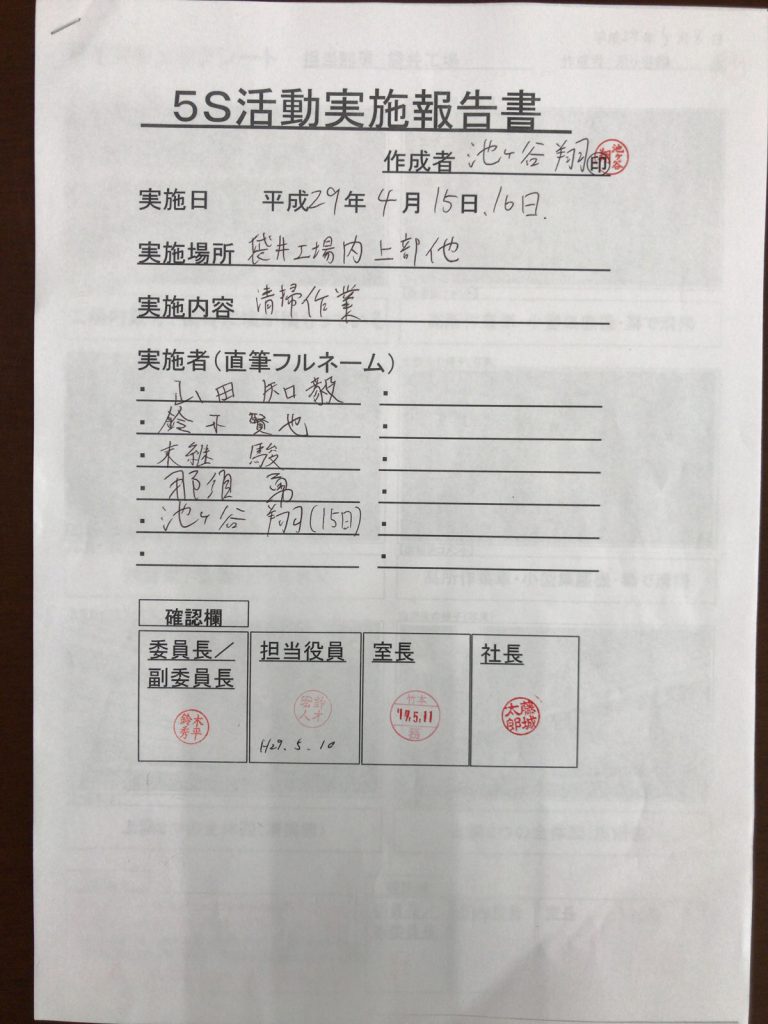 5S活動実施報告書
作成者 池ヶ谷翔 印 池ヶ谷翔
実施日 平成29年4月15日、16日.
実施場所 袋井工場内上部他
実施内容 清掃作業
実施者(直筆フルネーム)
・山田 知毅 ・
・鈴木 賢也 ・
・末継 駿 ・
・那須 勇 ・
・池ヶ谷 翔(15日) ・
・ ・
確認欄
委員長/ 担当役員 室長 社長
副委員長
鈴木秀平 竹本 '17.5.11 藤城太郎
H29.5.10